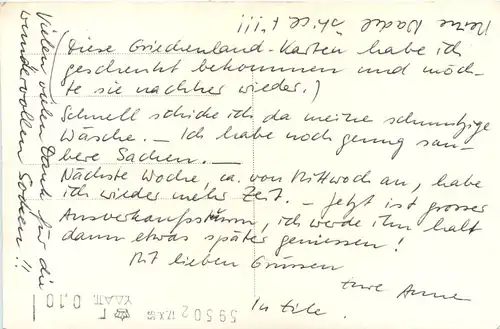 (Diese Griechenland-Karten habe ich
geschenkt bekommen und möch-
te sie nachher wieder.)
Schnell schicke ich da meine schmutzige
Wäsche. – Ich habe noch genug sau-
bere Sachen. –
Nächste Woche, ca. von Mittwoch an, habe
ich wieder mehr Zeit. – Jetzt ist grosser
Ausverkaufssturm, ich werde ihn halt
dann etwas später geniessen!
Mit lieben Grüssen
Eure Anne
In Eile.
Vielen, vielen Dank für die
wundervollen Socken!!
Meine
59502
0,10